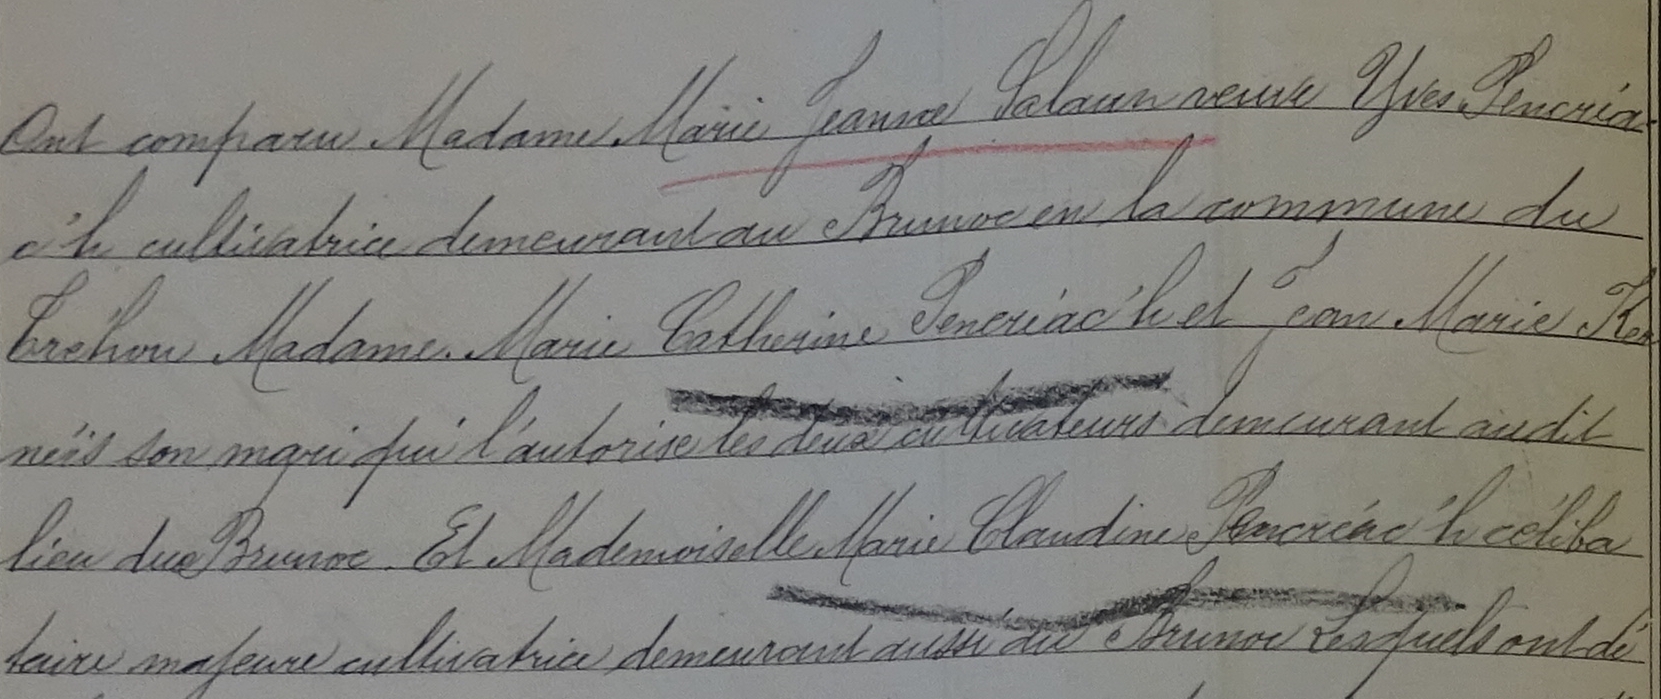 Ont comparu Madame Marie Jeanne Salaun veuve Yves Pencréa-
c'h cultivatrice demeurant au Brunoc en la commune du
Tréhou Madame Marie Catherine Pencréac'h et Jean Marie Ker
néis son mari qui l'autorise les deux cultivateurs demeurant audit
lieu du Brunoc. Et Mademoiselle Marie Claudine Pencréac'h céliba
taire majeure cultivatrice demeurant aussi au Brunoc Lesquels ont dé